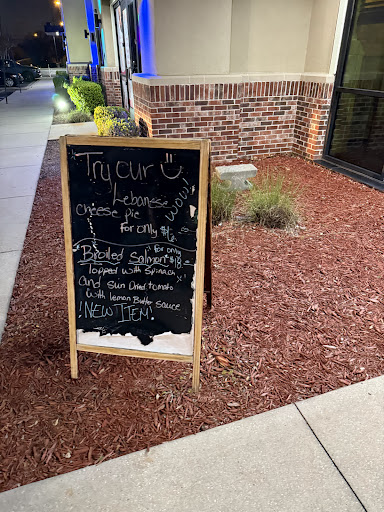 Try our
Lebanese
cheese pie WOW!
for only $16
Broiled Salmon for only $18
Topped with Spinach
and sun Dried tomato
with lemon Butter sauce
!NEW ITEM!